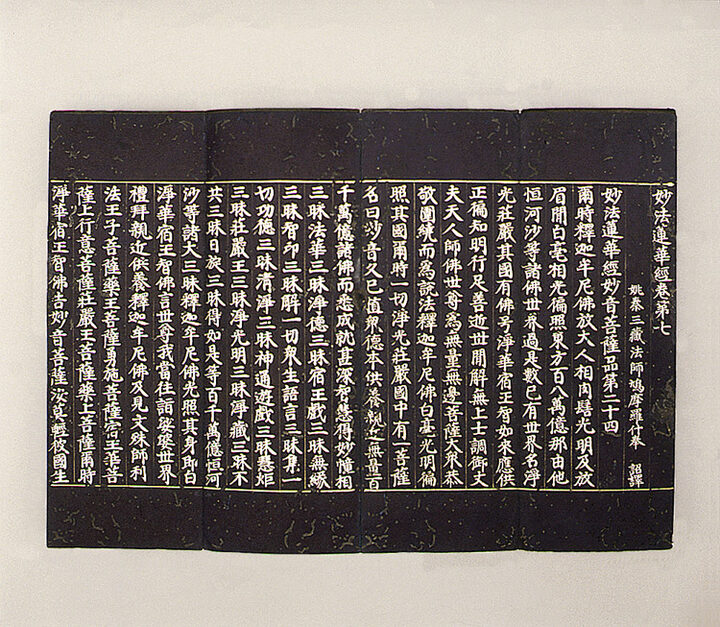 妙法蓮華經卷第七
姚秦三藏法師鳩摩羅什奉 詔譯
妙法蓮華經妙音菩薩品第二十四
爾時釋迦牟尼佛放大人相肉髻光明及放
眉間白毫相光徧照東方百八萬億那由他
恒河沙等諸佛世界過是數已有世界名淨
光莊嚴其國有佛号淨華宿王智如來應供
正徧知明行足善逝世間解無上士調御丈
夫天人師佛世尊為無量無邊菩薩大衆恭
敬圍繞而為說法釋迦牟尼佛白毫光明徧
照其國爾時一切淨光莊嚴國中有一菩薩
名曰妙音久已值衆德本供養親近無量百
千萬億諸佛而悉成就甚深智慧得妙幢相
三昧法華三昧淨德三昧宿王戲三昧無緣
三昧智印三昧解一切衆生語言三昧集一
切功德三昧清淨三昧神通遊戲三昧慧炬
三昧莊嚴王三昧淨光明三昧淨藏三昧不
共三昧日旋三昧得如是等百千萬億恒河
沙等諸大三昧釋迦牟尼佛光照其身即白
淨華宿王智佛言世尊我當往詣娑婆世界
禮拜親近供養釋迦牟尼佛及見文殊師利
法王子菩薩藥王菩薩勇施菩薩宿王華菩
薩上行意菩薩莊嚴王菩薩藥上菩薩爾時
淨華宿王智佛告妙音菩薩汝莫輕彼國生